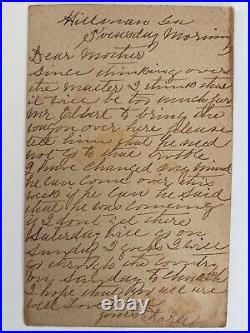 Hillman Ga
Tuesday Morning
Dear Mother
Since thinking over
the matter I think that
it will be too much for
Mr Elbert to bring the
wagon over here please
tell him that he need
not go to that troble
I have changed my mind
he can come over this
week if he can he said
that he was coming
if I dont get there
Saturday will go on
Sunday I guess I will
go through the country
on Sunday to church
I hope that you all are
well love to
yours